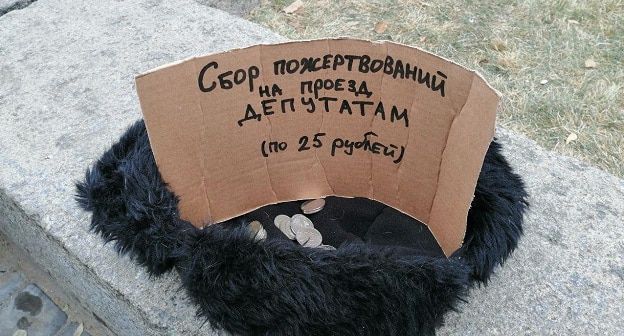 Сбор пожертвований
на проезд
депутатам
(по 25 рублей)